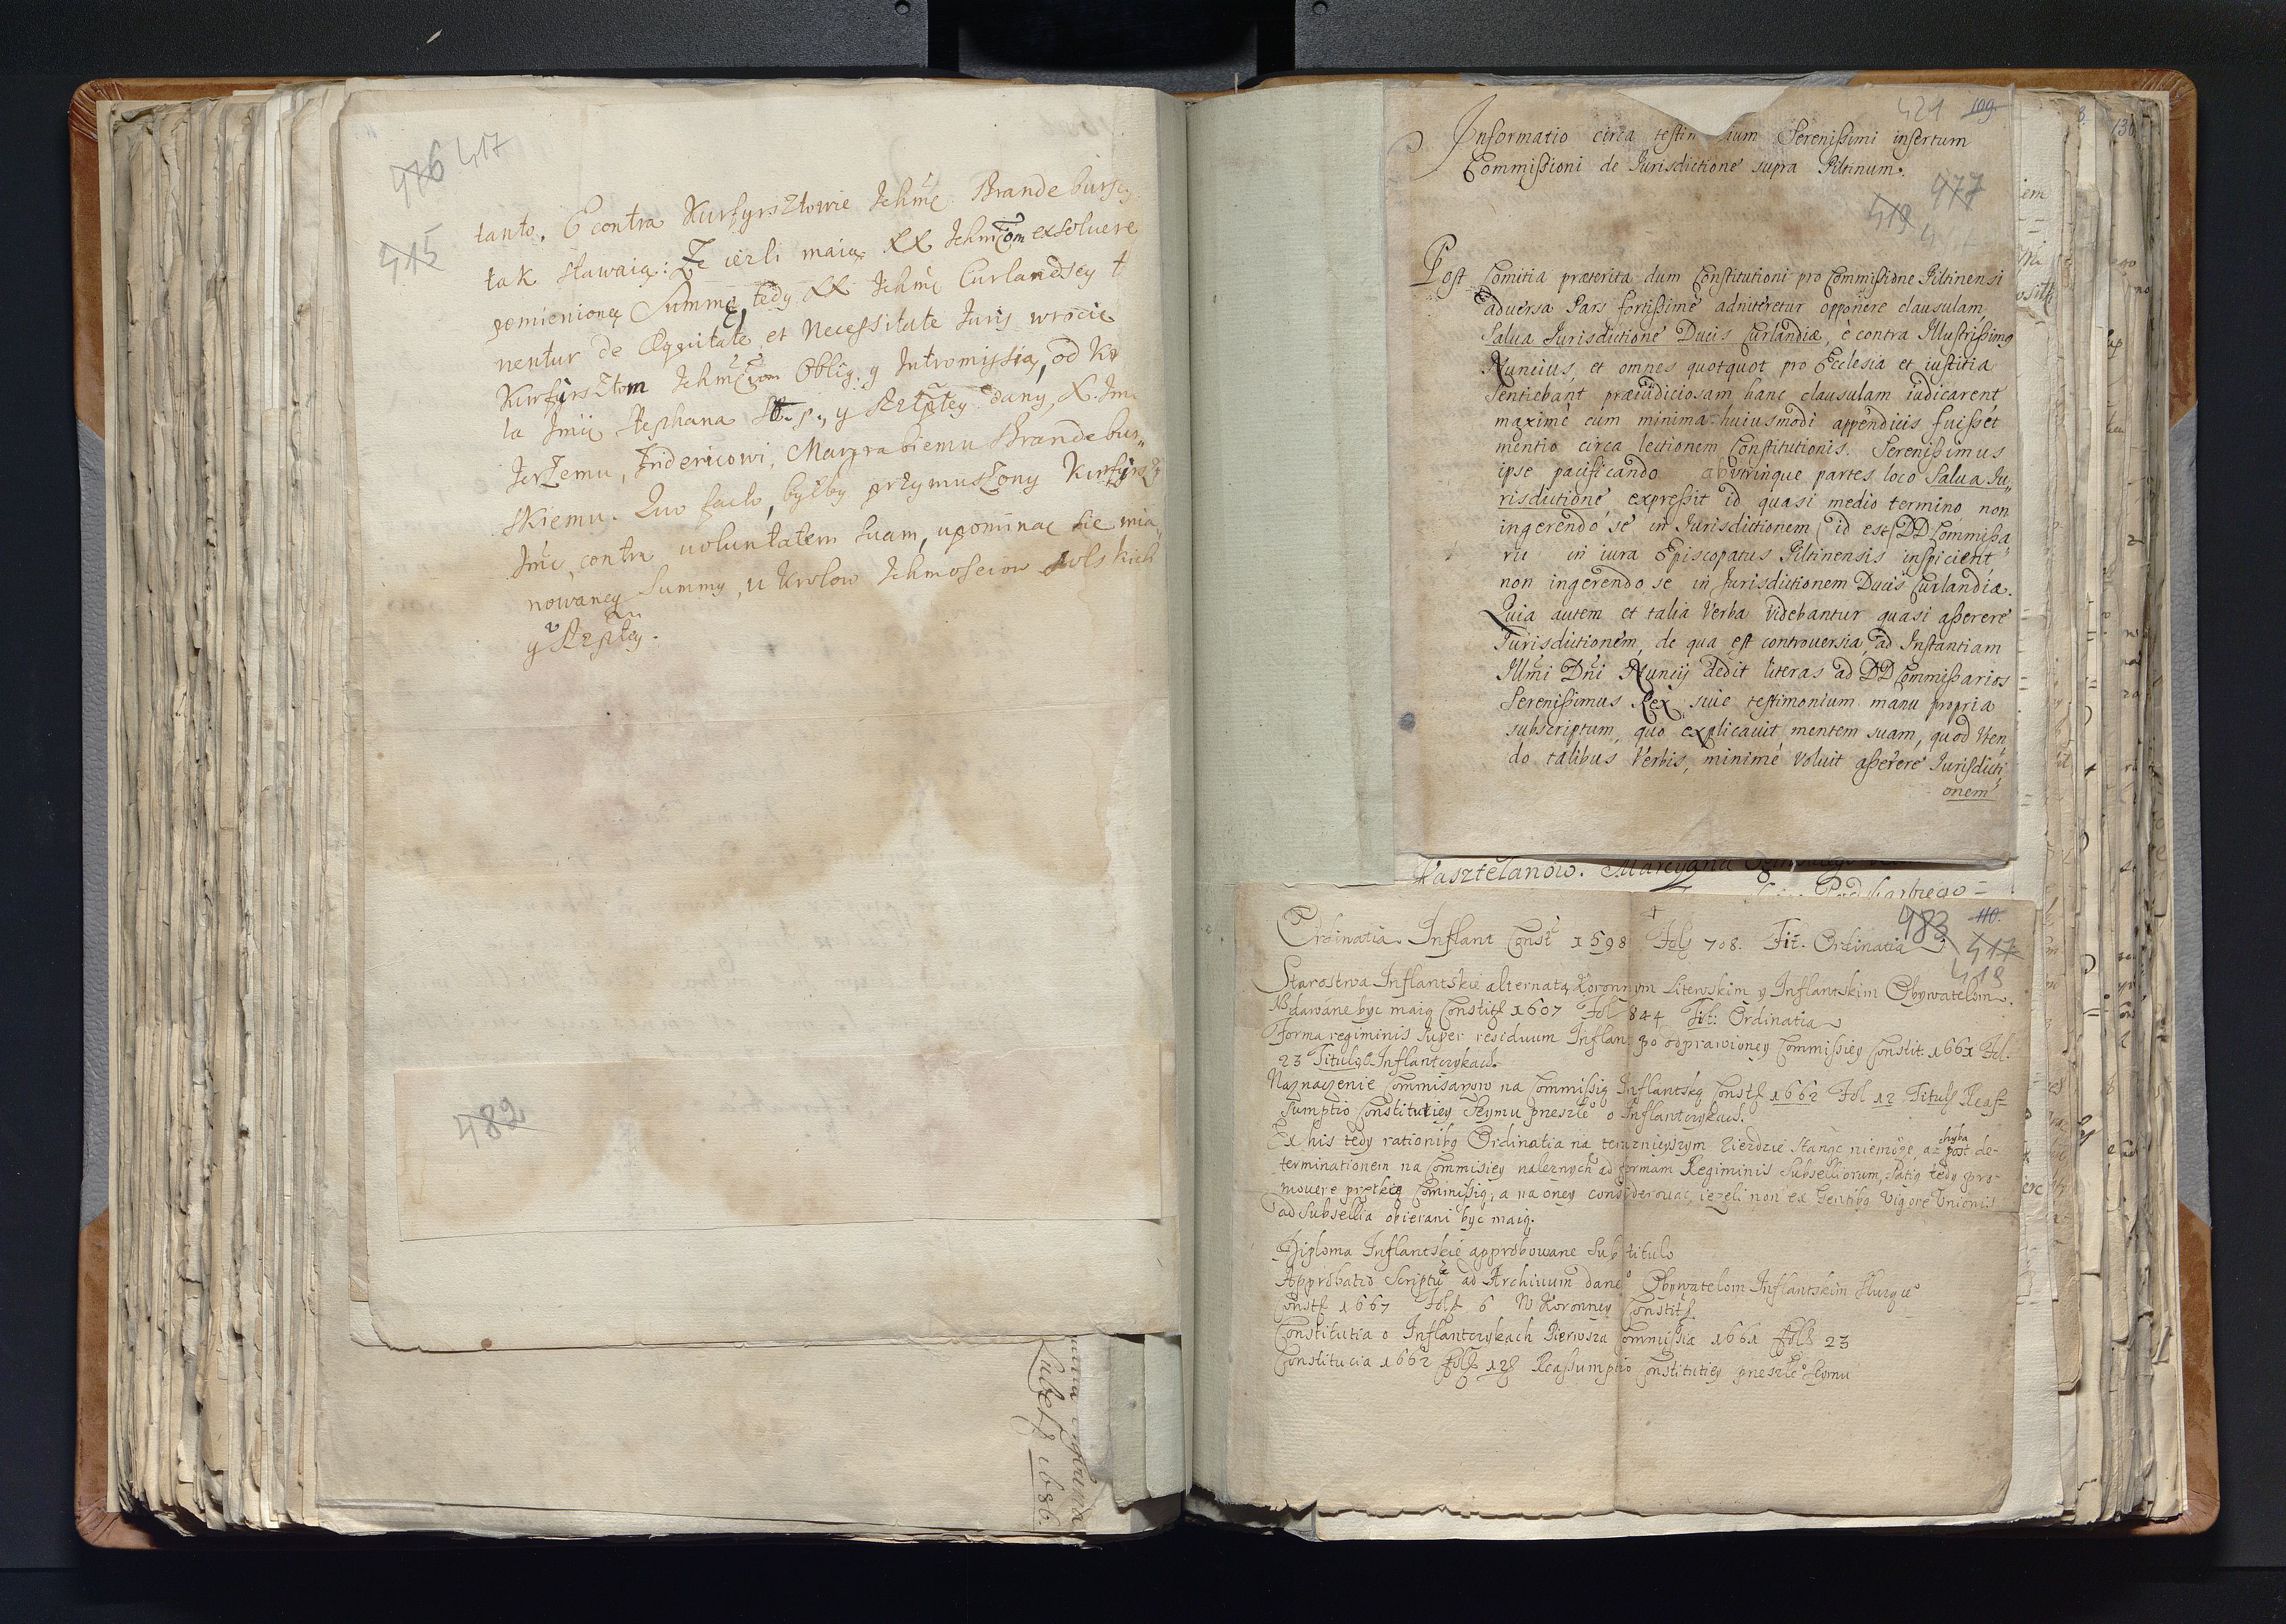 476 417
415
tanto. E contra Kurfyrsztowie Ichmę Brandeburscy
tak stawaią: Że ieżli maią XX Ichmčiom exsoluere
pomienioną Summę, tedy XX Ichmę Curlandscy t
nentur de Æquitate et Necessitate Iuris wrocic
Kurfyrsztom Ichmčiom Oblig: y Intromissią, od Kr
la Imči Stephana St. p., y Rzptey dany X. Im
Ierzemu, Fridericowi, Margrabiemu Brandebur„
skiemu. Quo facto, byłby przymuszony Kurfyrszt
Imč, contra uoluntatem suam, upominac sie mia„
nowaney Summy, u Krolow Ichmosciow Polskich
y Rzptey.
482
Lubelſ 1686.
421 109
Informatio circa testim ium Serenissimi insertum
Commissioni de Iurisdictione supra Piltinum.
477
419
Post Comitia præterita dum Constitutioni pro Commissione Piltinensi
aduersa Pars fortissime adniteretur opponere clausulam
Salua Iurisdictione Ducis Curlandiæ, è contra Illustrissimg
Nuncius, et omnes quotquot pro Ecclesia et iustitia
sentiebant præiudiciosam hanc clausulam iudicarent
maxime cum minima huiusmodi appendicis fuisset
mentio circa lectionem Constitutionis. Serenissimus
ipse pacificando abutrinque partes, loco Salua Iu„
risdictione expressit id quasi medio termino non
ingerendo se in Iurisdictionem (id est DD Commissa„
rii in iura Episcopatus Piltinensis inspicient
non ingerendo se in Iurisdictionem Ducis Curlandiæ.
Quia autem et talia Verba videbantur quasi asserere
Iurisdictionem, de qua est controuersia, ad Instantiam
Illmi Dni Nuncij dedit literas ad DD Commissarios
Serenissimus Rex, siue testimonium manu propria
subscriptum, quo explicauit mentem suam, quod Vten
do talibus Verbis, minime voluit asserere Iurisdicti
onem
Kasztelanow. Marcyana
Podskarbiego
483 110.
Ordinatia Inflant Const 1598 Fol 708. Tit. Ordinatia
417
418
Starostwa Inflantskie alternatą Koronnym Litewskim y Inflantskim Obywatelom.
Wdawane byc maią Constit 1607 Fol 844 Tit: Ordinatia
Forma regiminis super residuum Inflant po odprawioney Commissiey Constit: 1661 Fol.
23 Titulo o Inflantczykach.
Naznaczenie Commisarzow na Commissią Inflantską Const 1662 Fol 12 Titulſ Reas=
sumptio Constitutiey Seymu przeszłe° o Inflantczykach.
Ex his tedy rationibg Ordinatia na teraznieyszym Zieżdzie stanąc niemoże, aż chyba post de-
terminationem na Commisiey należnych ad formam Regiminis Subselliorum, Satig tedy pro-
mouere prętką Commissią, a na oney considerouac, ieżeli non ex Gentibg vigore Unionis
ad Subsellia obierani byc maią.
Diploma Inflantskie approbowane Sub titulo
Approbatio Scriptu ad Archiuum dane° Obywatelom Inflantskim służące°
Const 1667 Fol 6 W Koronney Constit
Constitutia o Inflantczykach Pierwsza Commissia 1661 fol 23
Constitucia 1662 fol 12 Reassumptio Constitutiey przeszłe° Seymu